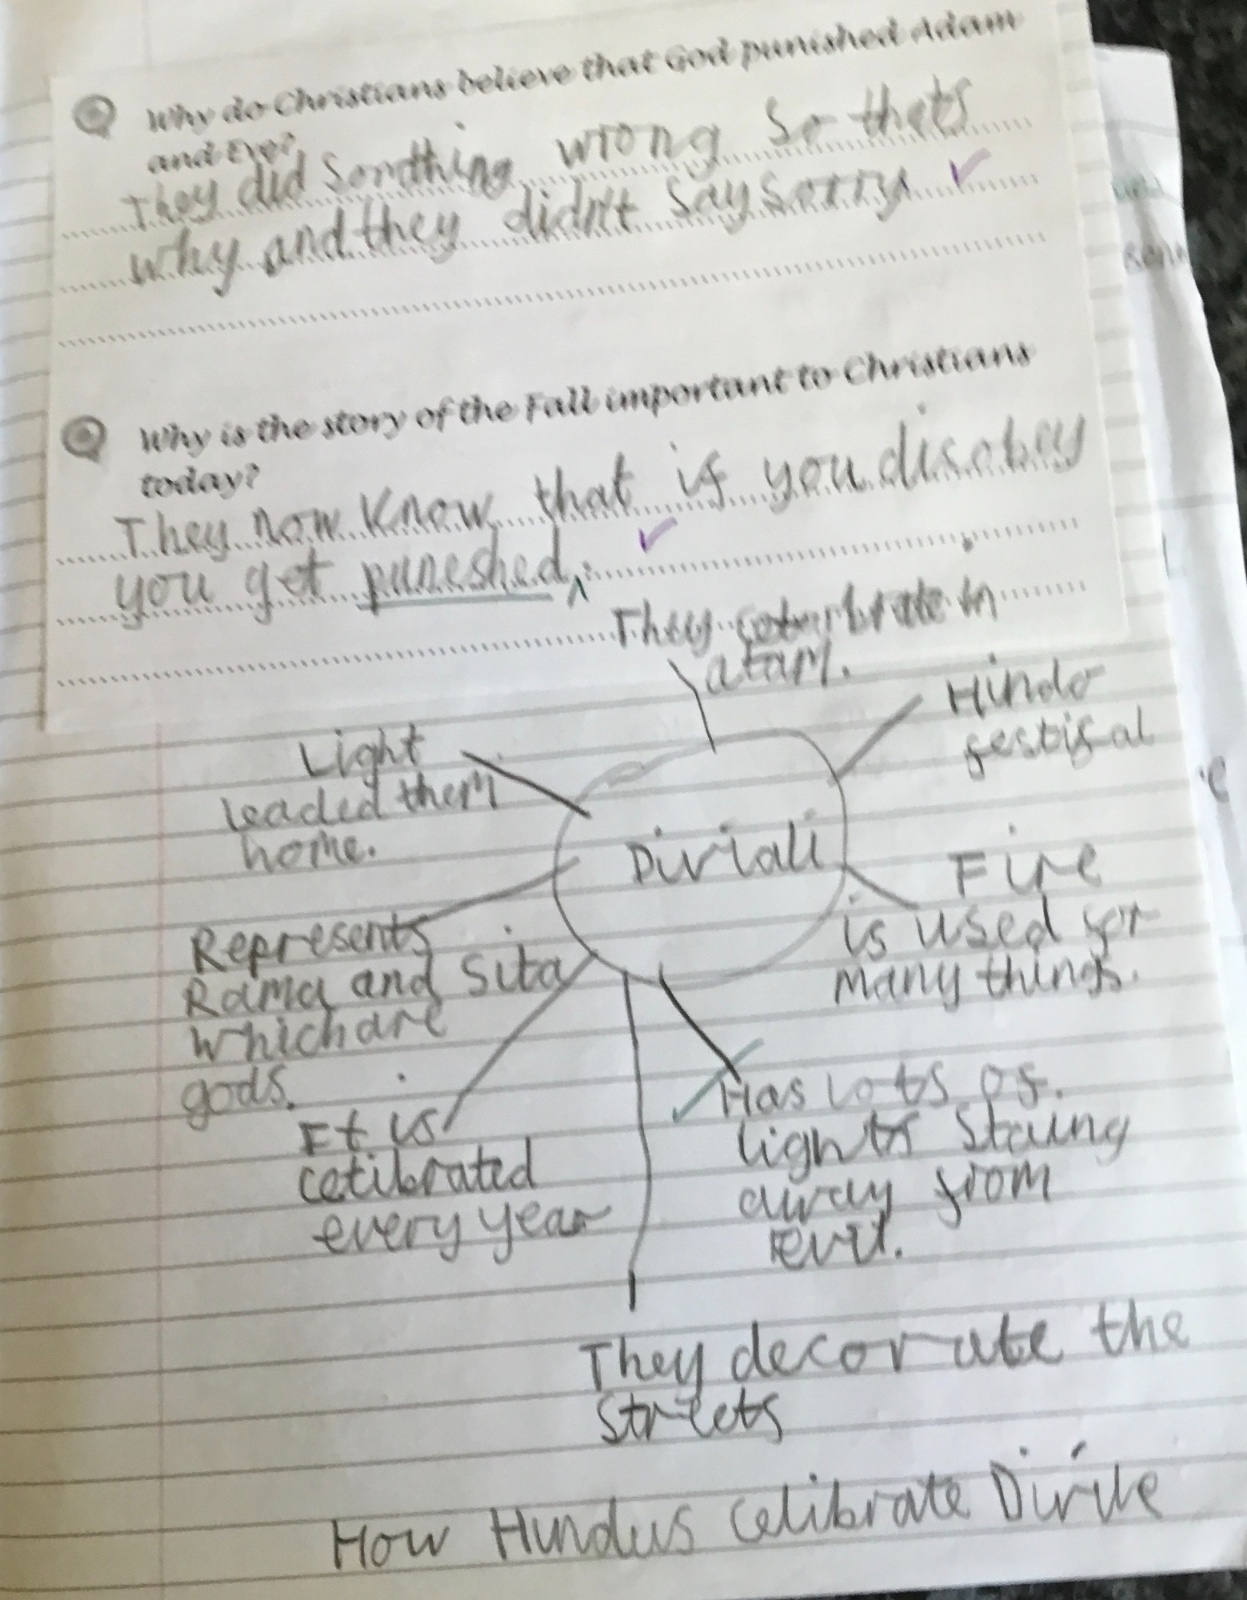 Why do Christians believe that God punished Adam
and Eve?
They did somthing wrong so thats
why and they didn't say sorry
Why is the story of the Fall important to Christians
today?
They now know that if you disobey
you get puneshed.
They in
Hindo
festifal
Light
leaded them
home.
Diviali
Fire
is used for
many things.
Represents
Rama and Sita
which are
gods.
It is
celibrated
every year
Has lots of
lights
away from
evil.
They decorate the
streets
How Hindus celibrate